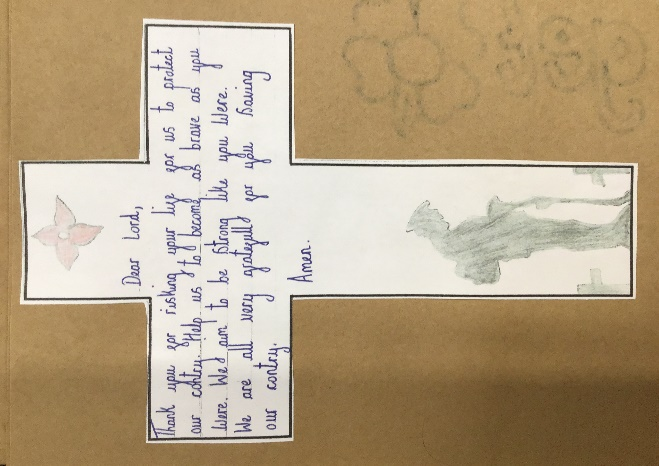 Dear Lord,
Thank you for risking your life for us to protect
our contry. Help us to become as brave as you
were. We'd aim to be strong like you were.
We are all very gratefull for you saving
our contry.
Amen.